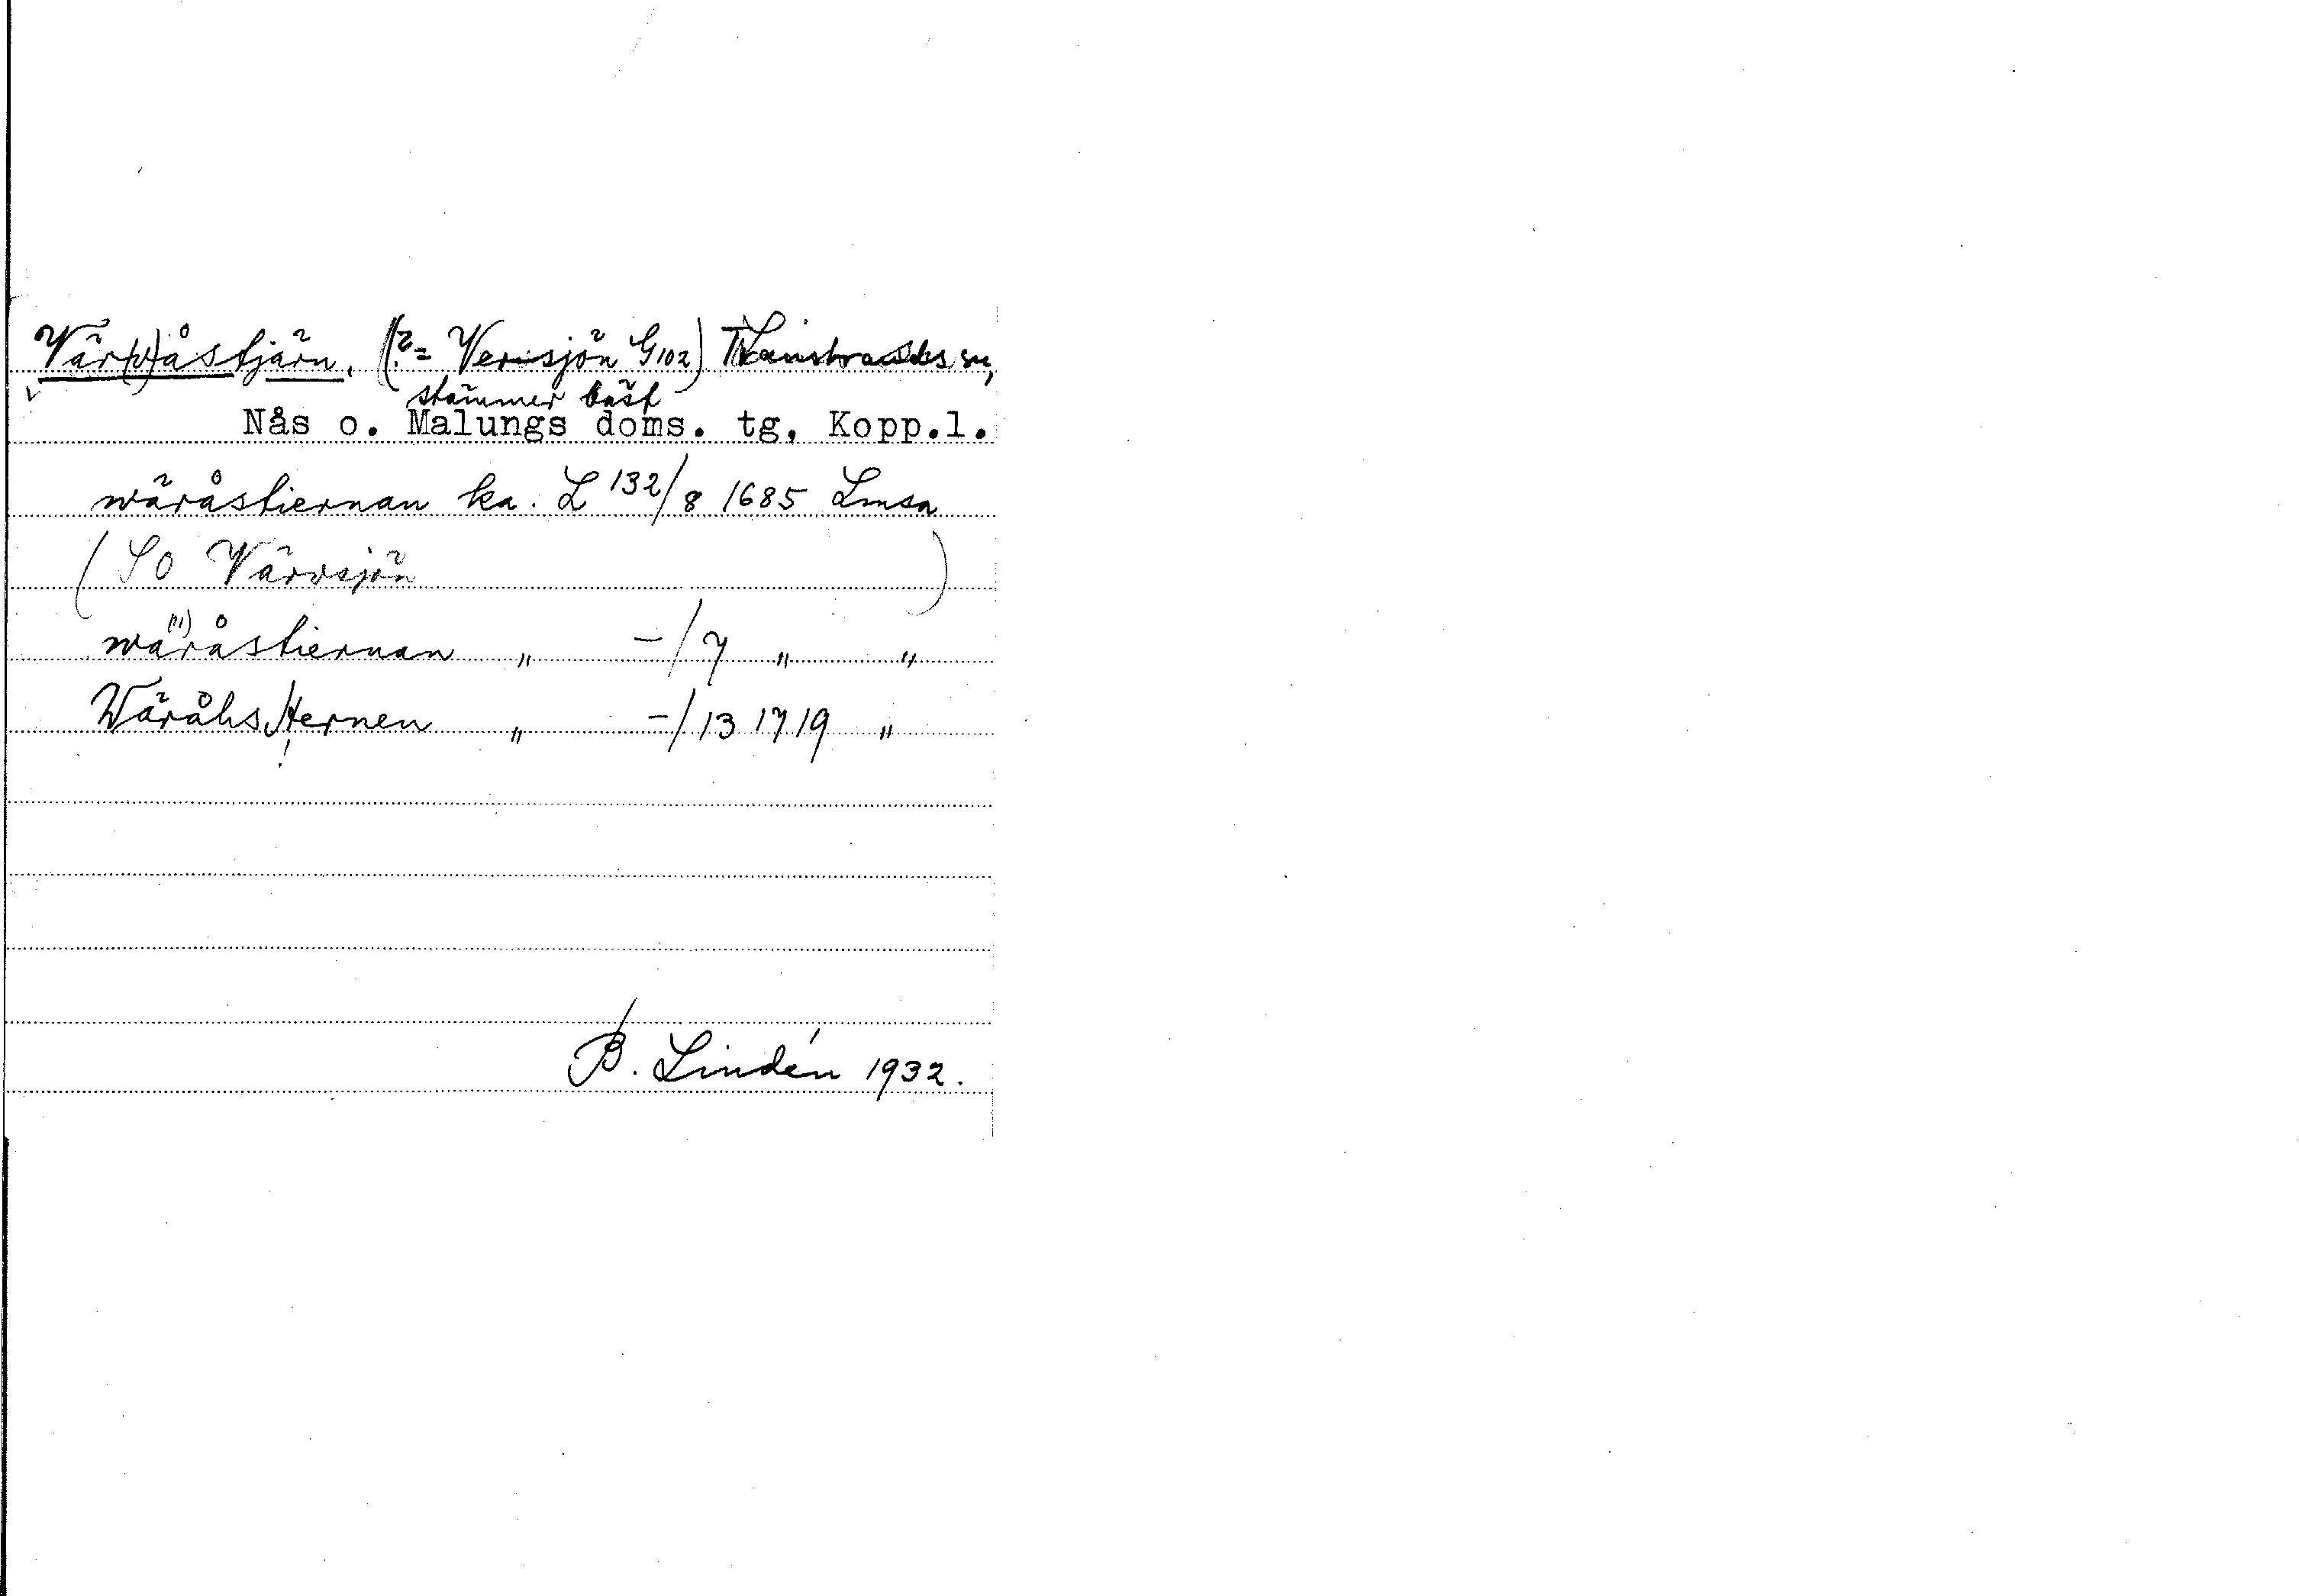 Vär(v)åstjärn. (?= Versjön G102) Transtrands sn,
stämmer bäst
Nås o. Malungs doms. tg, Kopp.l.
wäråstiernan ka. L 132/8 1685 Lmsa
(SO Värvsjön )
wä(n)råstiernan „ -/7 „ „
Wäråhsternen „ -/13 1719 „
!
B. Lindén 1932.